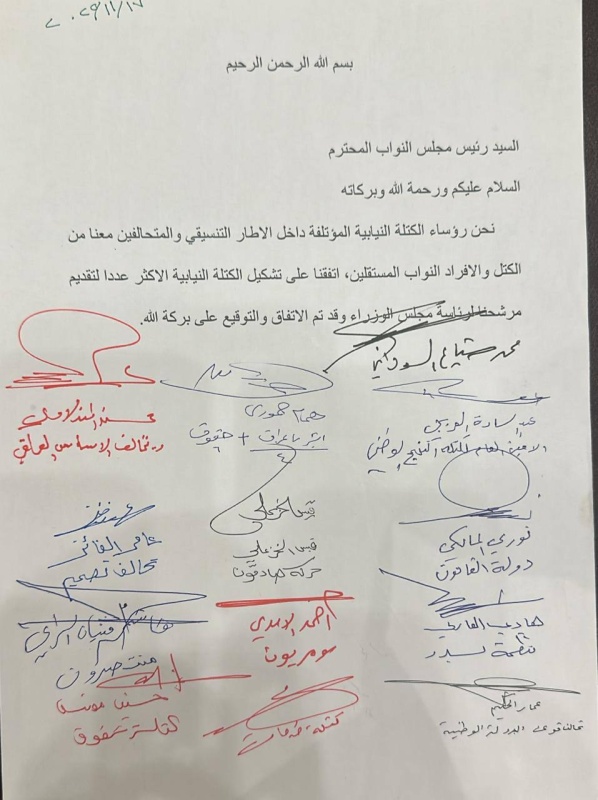 ٢٠٢٥/١١/١٧
بسم الله الرحمن الرحيم
السيد رئيس مجلس النواب المحترم
السلام عليكم ورحمة الله وبركاته
نحن رؤساء الكتلة النيابية المؤتلفة داخل الاطار التنسيقي والمتحالفين معنا من
الكتل والافراد النواب المستقلين، اتفقنا على تشكيل الكتلة النيابية الاكثر عددا لتقديم
مرشحنا لرئاسة مجلس الوزراء وقد تم الاتفاق والتوقيع على بركة الله.
محمد شياع السوداني
محسن المندلاوي
تحالف الاساس العراقي
همام حمودي
ابشر يا عراق + حقوق
عبد السادة الفريجي
نوري المالكي
دولة القانون
قيس الخزعلي
حركة صادقون
عامر الفائز
تحالف تصميم
هادي العامري
منظمة بدر
احمد الاسدي
سومريون
عمار الحكيم
تحالف قوى الدولة الوطنية
كتلة خدمات
حسين مؤنس